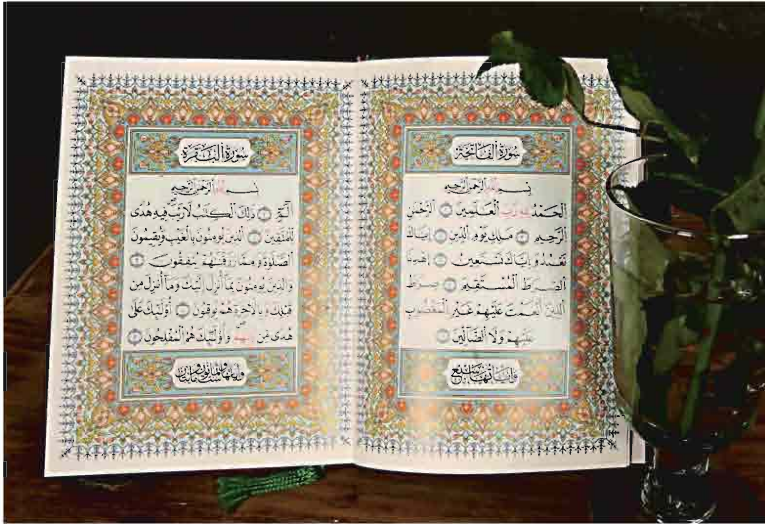 سورة الفاتحة
بسم الله الرحمن الرحيم
الحمد لله رب العلمين ۝ الرحمن
الرحيم ۝ ملك يوم الدين ۝ إياك
نعبد وإياك نستعين ۝ اهدنا
الصرط المستقيم ۝ صرط
الذين أنعمت عليهم غير المغضوب
عليهم ولا الضالين ۝
سورة البقرة
بسم الله الرحمن الرحيم
الم ۝ ذلك الكتب لا ريب فيه هدى
للمتقين ۝ الذين يؤمنون بالغيب ويقيمون
الصلوة ومما رزقنهم ينفقون ۝
والذين يؤمنون بما أنزل إليك وما أنزل من
قبلك وبالآخرة هم يوقنون ۝ أولئك على
هدى من ربهم وأولئك هم المفلحون ۝